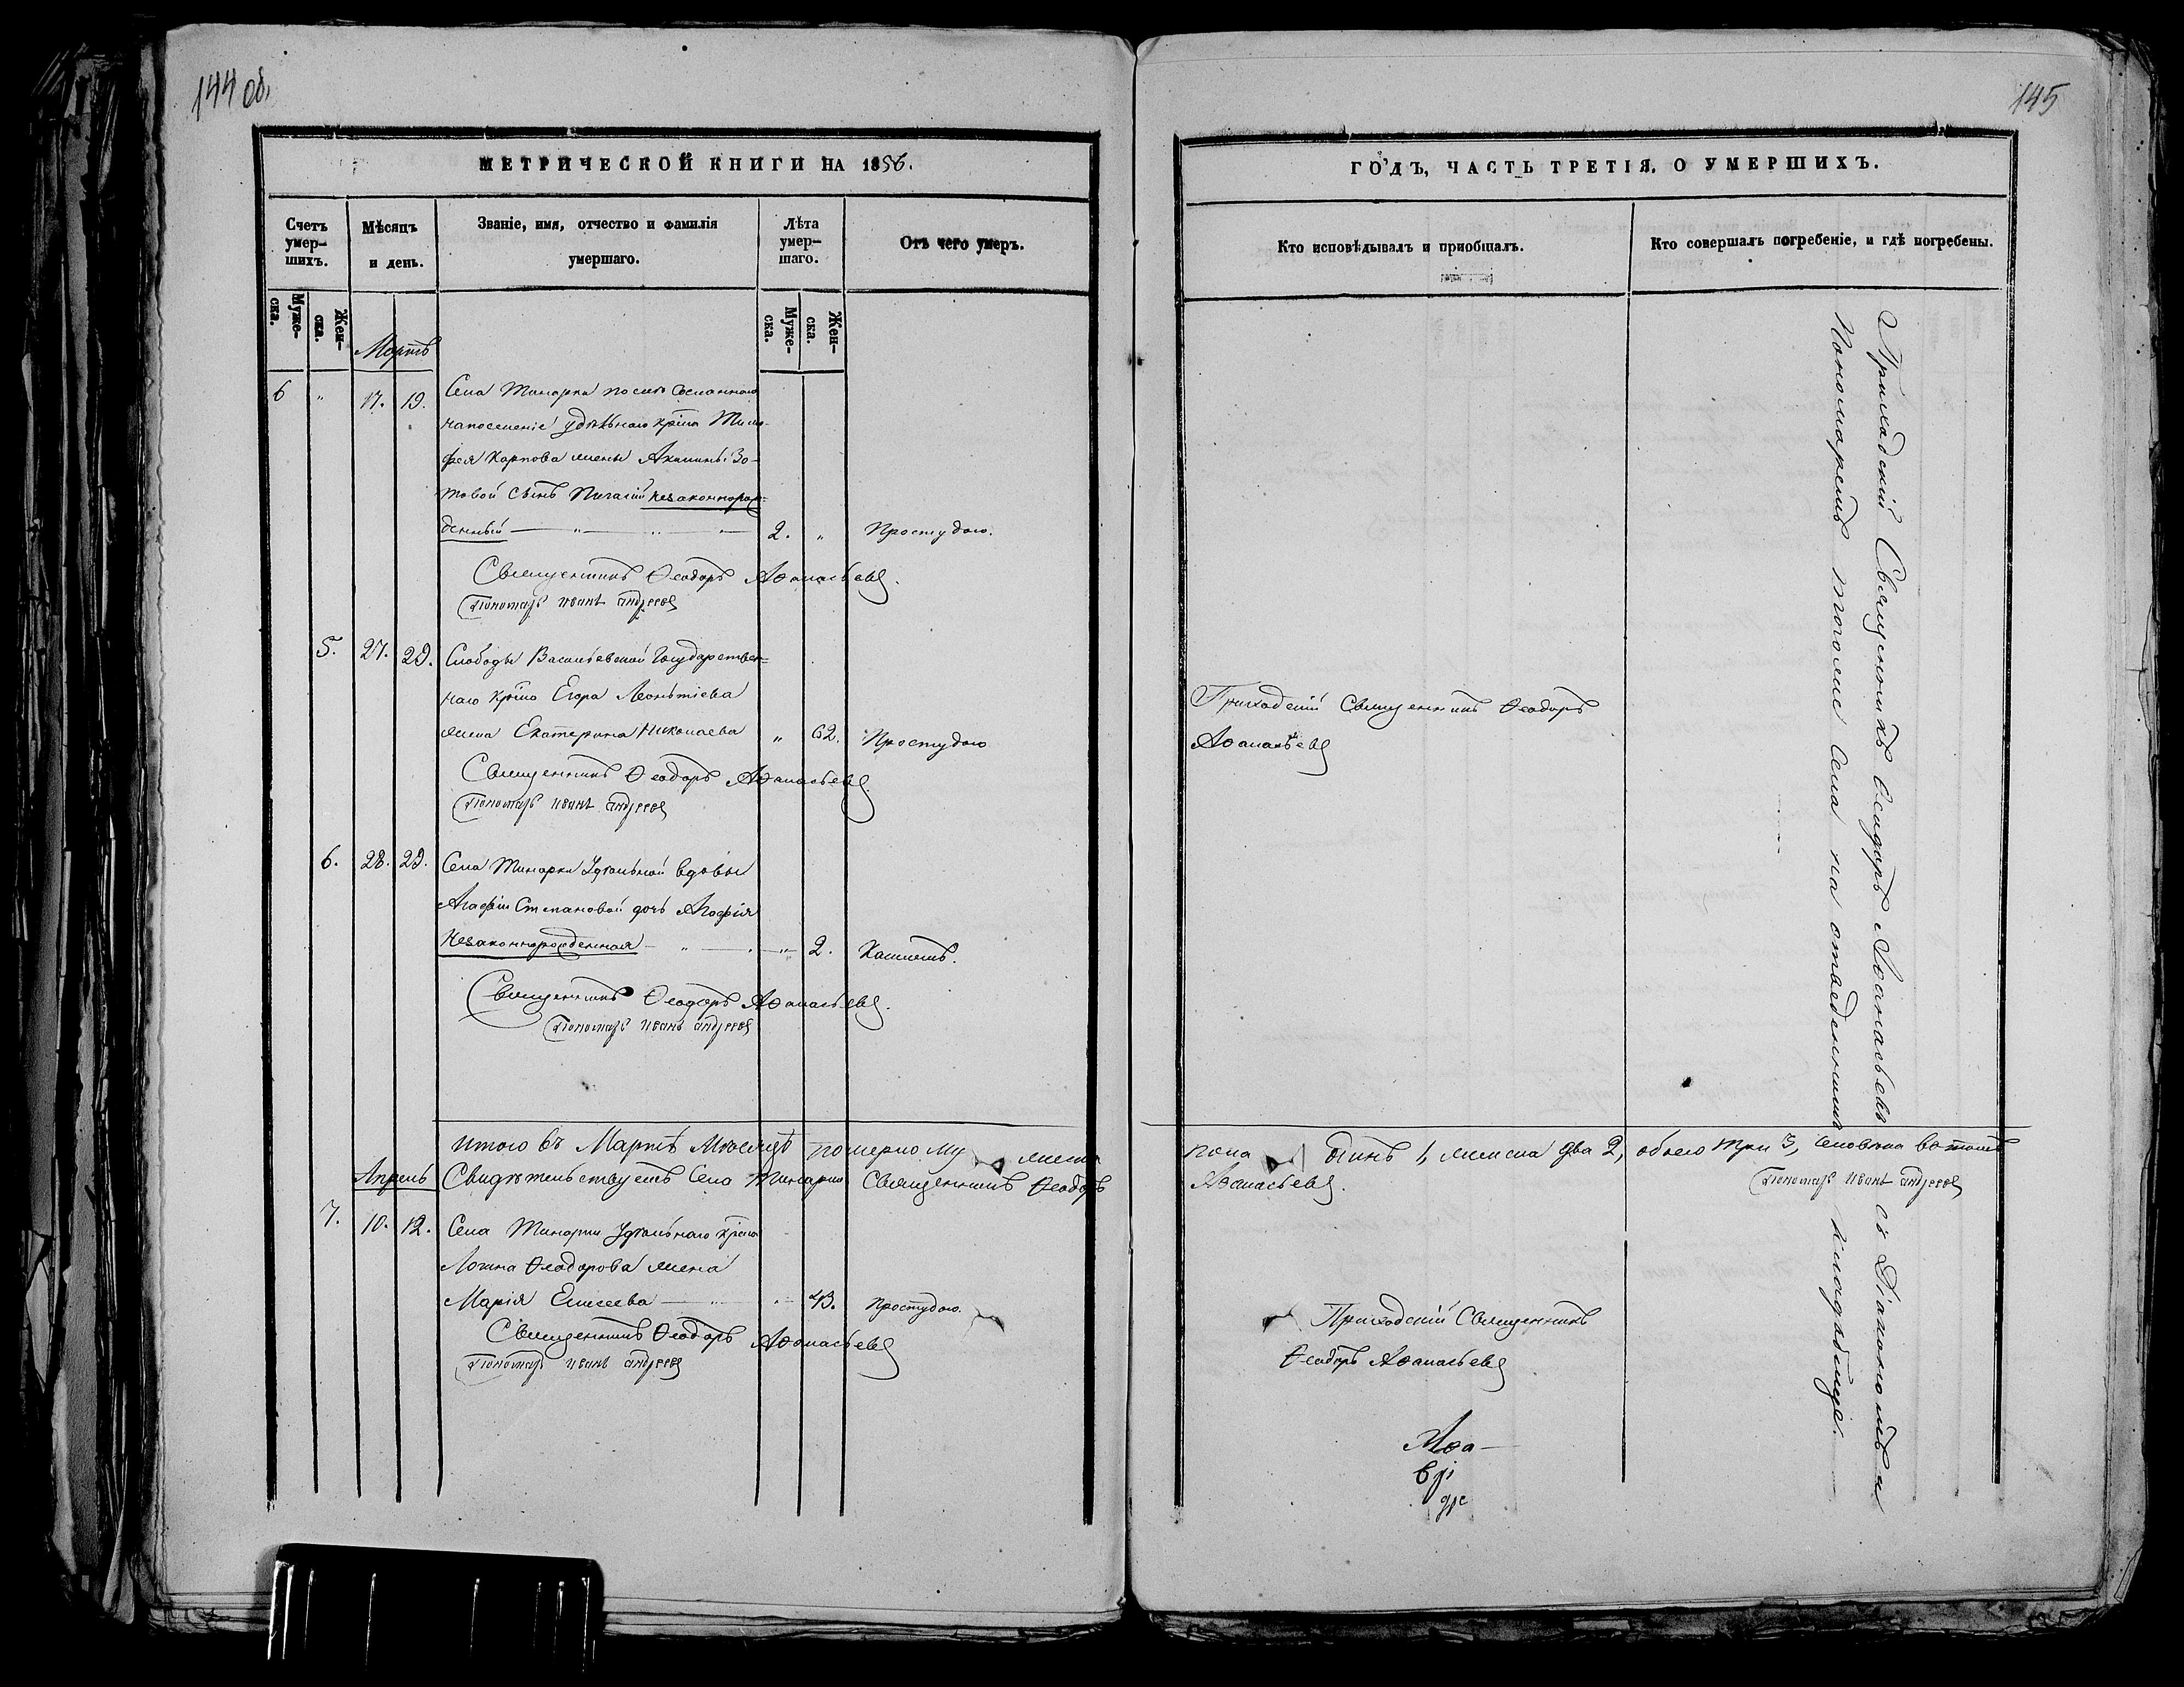 144 об.
МЕТРИЧЕСКОЙ КНИГИ НА 1856.
Счетъ умер-шихъ.
Мѣсяцъ и день.
Званіе, имя, отчество и фамилія умершаго.
Лѣта умер-шаго.
Отъ чего умеръ.
Муже-ска.
Жен-ска.
Муже-ска.
Жен-ска.
Мартъ
6 " 17. 19. Села Тинарка послѣ сосланнаго
на поселеніе удѣльнаго крѣна Тимо-
фея Карпова жены Акилины Зо-
товой сынъ незаконнорож-
денный 2. " Простудою.
Священникъ Ѳеодоръ Аѳанасьевъ.
Пономарь Иванъ Андреевъ
5. 27. 29. Слободы Васильевской Государствен-
наго крѣна Егора Леонтіева
жена Екатерина Николаева " 62. Простудою
Священникъ Ѳеодоръ Аѳанасьевъ.
Пономарь Иванъ Андреевъ
6. 28. 29. Села Тинарки Удѣльной вдовы
Агафіи Степановой дочь Агафія
Незаконнорожденная " 2. Кашлемъ.
Священникъ Ѳеодоръ Аѳанасьевъ.
Пономарь Иванъ Андреевъ
Итого въ Мартѣ Мѣсяцѣ померло му жеска
Апрель Свидѣтельствуетъ Села Тинарки Священникъ Ѳеодоръ
7. 10. 12. Села Тинарки Удѣльнаго крѣна
Логина Ѳеодорова жена
Марія Елисеева 43. Простудою.
Священникъ Ѳеодоръ Аѳанасьевъ
Пономарь Иванъ Андреевъ
145
ГОДЪ, ЧАСТЬ ТРЕТІЯ, О УМЕРШИХЪ.
Кто исповѣдывалъ и пріобщалъ.
Кто совершалъ погребеніе, и гдѣ погребены.
Приходскій Священникъ Ѳеодоръ
Аѳанасьевъ
Приходскій Священникъ Ѳеодоръ Аѳанасьевъ съ Діакономъ и
Пономаремъ тогоже села на отведенномъ кладбищѣ.
пола одинъ 1, женска два 2, обоего три 3, человѣка
Аѳанасьевъ.
Пономарь Иванъ Андреевъ
Приходскій Священникъ
Ѳеодоръ Аѳанасьевъ